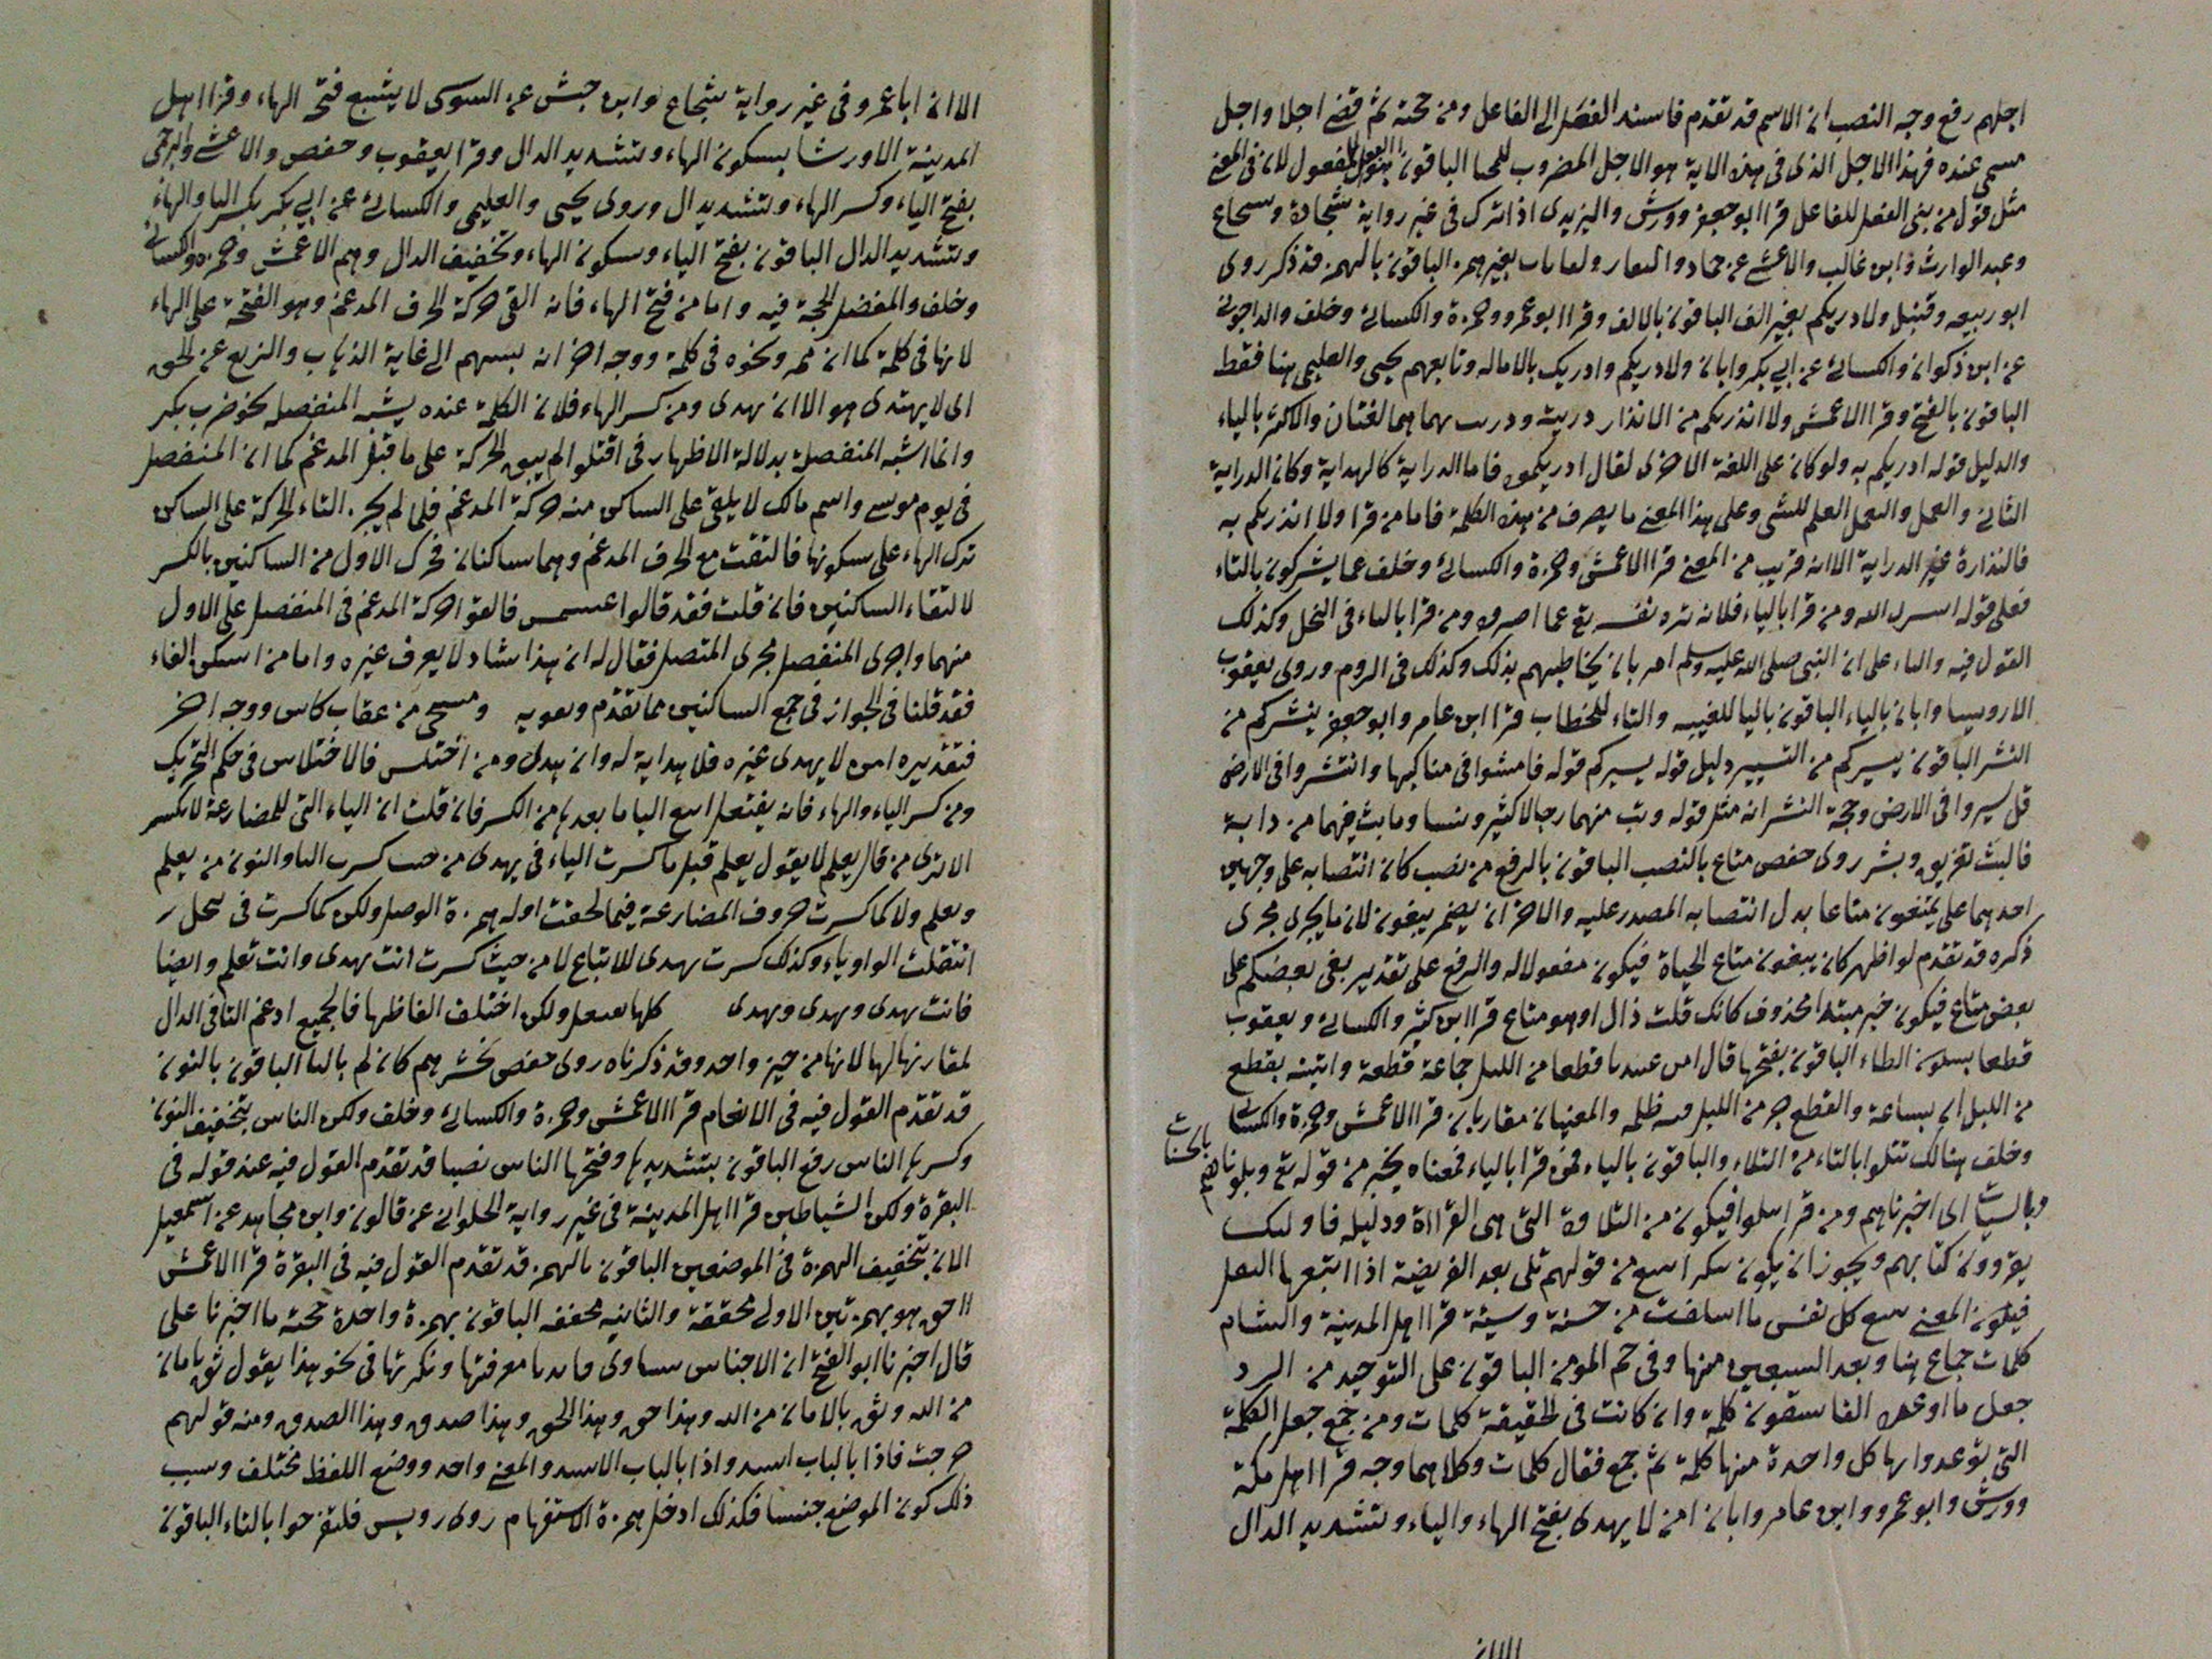 اجلهم رفع وجه النصب ان الاسم قد تقدم فاسند الفعل الى الفاعل ومن حجته ثم قضى اجلا واجل
مسمى عنده فهذا الاجل الذى فى هذه الاية هو الاجل المضروب للمحيا الباقون الفعل للمفعول لانه فى المعنى
مثل قول من بنى الفعل للفاعل قرا ابو جعفر وورش واليزيدى اذا ترك فى غير رواية سجادة وسجاع
وعبد الوارث وابن غالب والاعشى عن حماد والنقار بغير همز الباقون بالهمز قد ذكر روى
ابو ربيعه وقنبل ولا دريكم بغير الف الباقون بالالف وقرا ابو عمرو وحمزة والكسائى وخلف والداجونى
عن ابن ذكوان والكسائى عن ابى بكر وابان ولا دريكم وادريك بالاماله وتابعهم يحيى والعليمى هنا فقط
الباقون بالفتح وقرا الاعمش ولا انذرتكم من الانذار دريت ودريت بهما هما لغتان والاكثر بالياء
والدليل قوله ادريكم به ولو كان على اللغة الاخرى لقال ادريكموه فاما الدراية كالهداية وكان الدراية
التانى والعمل والعمل العلم للشى وعلى هذا المعنى ما يصرف من هذه الكلمة فاما من قرا ولا انذرتكم به
فالنذارة غير الدراية الا انه قريب من المعنى قرا الاعمش وحمزة والكسائى وخلف عما يشركون بالتاء
فعلى قوله الله ومن قرا بالياء فلانه نزه نفسه تع عما ومن قرا بالياء فى النحل وكذلك
القول فيه والتاء على ان النبى صلى الله عليه وسلم امر بان يخاطبهم بذلك وكذلك فى الروم وروى يعقوب
الا رويسا وابان بالياء الباقون باليا للغيبه والتاء للخطاب قرا ابن عامر وابو جعفر ينشركم من
النشر الباقون يسيركم من التسيير دليل قوله يسيركم قوله فامشوا فى مناكبها وانتشروا فى الارض
قل سيروا فى الارض وحجة النشر انه مثل قوله وبث منهما رجالا كثيرا ونسا وما بث فيهما من دابة
فالبث تفريق وبشر روى حفص متاع بالنصب الباقون بالرفع من نصب كان انتصابه على وجهين
احدهما على يمتعون متاعا بدل انتصابه المصدر عليه والاخر ان يضمر يبغون لان ما يجرى مجرى
ذكره قد تقدم لو اظهر كان يبغون متاع الحياة فيكون مفعولا له والرفع على تقدير بغى بعضكم على
بعض متاع فيكون خبر مبتدا محذوف كانك قلت ذاك او هو متاع قرا ابن كثير والكسائى ويعقوب
قطعا بسكون الطاء الباقون بفتحها قال ابن عبيده قطعا من الليل جماعة قطعة واتيته بقطع
من الليل اى بساعة والقطع جز من الليل فيه ظلمه والمعنيان متقاربان قرا الاعمش وحمزة والكسائى
وخلف هنالك تتلوا بالتاء من التلاء والباقون بالياء فمن قرا بالياء فمعناه يخبر من قوله تع وبلوناهم بالحسنات
والسيات اى اخبرناهم ومن قرا تتلوا فيكون من التلاوة التى هى القرااة ودليله فاوليك
يقرؤون كتابهم ويجوز ان يكون تتلوا تتبع من قولهم تلى بعد الفريضة اذا اتبعها النفل
فيكون المعنى تتبع كل نفس ما اسلفت من حسنة وسيئة قرا اهل المدينة والشام
كلمات جماع هنا وبعد السبعين منها وفى حم المومن الباقون على التوحيد من الرد
جعل ما اوعد الفاسقون كلمة وان كانت فى الحقيقة كلمات ومن جمع جعل الكلمة
التى توعدوا بها كل واحدة منها كلمة ثم جمع فقال كلمات وكلاهما وجه قرا اهل مكة
وورش وابو عمرو وابن عامر وابان امن لا يهدى بفتح الهاء والياء وتشديد الدال
الا ان
الا ان ابا عمرو فى غير رواية شجاع وابن حبش عن السوسى لا يشبع فتح الهاء وقرا اهل
المدينة الا ورشا بسكون الهاء وتشديد الدال وقرا يعقوب وحفص والاعشى والبرجمى
بفتح الياء وكسر الهاء وتشديد ال وروى يحيى والعليمى والكسائى عن ابى بكر بكسر اليا والهاء
وتشديد الدال الباقون بفتح الياء وسكون الهاء وتخفيف الدال وهم الاعمش وحمزة والكسائى
وخلف والمفضل الحجة فيه واما من فتح الهاء فانه القى حركة الحرف المدغم وهو الفتحة على الهاء
لانها فى كلمة كما ان ممر ونحوه فى كلمة ووجه اخر انه بسهم الى غاية الذهاب والزيغ عن الحق
اى لا يهتدى هو الا ان يهدى ومن كسر الهاء فلان الكلمة عنده يشبه المنفصله نحو ضرب بكر
وانما اشبه المنفصلة بدلالة الاظهار فى اقتتلوا لم يبق الحركة على ما قبل المدغم كما ان المنفصل
فى يوم موسى واسم مالك لا يلقى على الساكن منه حركة المدغم فلما لم يجز القاء الحركة على الساكن
ترك الهاء على سكونها فالتقت مع الحرف المدغم وهما ساكنان فحرك الاول من الساكنين بالكسر
لالتقاء الساكنين فان قلت فقد قالوا عبشمس فالقوا حركة المدغم فى المنفصل على الاول
منهما واجرى المنفصل مجرى المتصل فقال له ان هذا شاد لا يعرف غيره واما من اسكن الهاء
فقد قلنا فى الجواز فى جمع الساكنين مما تقدم ويقويه ومسحى من عقاب كاس ووجه اخر
فتقديره امن لا يهدى غيره فلا هداية له وان هدى ومن اختلس فالاختلاس فى حكم التحريك
ومن كسر الياء والهاء فانه يفتعل اتبع اليا ما بعدها من الكسر فان قلت ان الياء التى للمضارعة لا تكسر
الا ترى من قال يعلم لا يقول يعلم قيل ما كسرت الياء فى يهدى من حيث كسرت اليا والنون من يعلم
ويعلم ولا كما كسرت حروف المضارعة فيما لحقت اوله همزة الوصل ولكن كما كسرت فى
انتقلت الواو ياء وكذلك كسرت يهدى للاتباع لا من حيث كسرت انت تهدى وانت تعلم وايضا
فانت تهدى ويهدى ويهدى كلها يفتعل ولكن اختلف الفاظها فالجميع ادغم التا فى الدال
لمقاربتها لها لانها من حيز واحد وقد ذكرناه روى حفص نحشرهم كان لم باليا الباقون بالنون
قد تقدم القول فيه فى الانعام قرا الاعمش وحمزة والكسائى وخلف ولكن الناس بتخفيف النون
وكسرها الناس رفع الباقون بتشديدها وفتحها الناس نصبا قد تقدم القول فيه عند قوله فى
البقرة ولكن الشياطين قرا اهل المدينة فى غير رواية الحلوانى عن قالون وابن مجاهد عن اسمعيل
الان بتخفيف الهمزة فى الموضعين الباقون بالهمز قد تقدم القول فيه فى البقرة قرا الاعمش
ااحق هو بهمزتين الاولى محققة والثانيه مخففه الباقون بهمزة واحدة حجته ما اخبرنا على
قال اخبرنا ابو الفتح ان الاجناس سساوى فايدتا معرفتها ونكرتها فى نحو هذا يقول ثق بامان
من الله وثق بالامان من الله وهذا حق وهذا الحق وهذا صدق وهذا الصدق ومنه قولهم
خرجت فاذا بالباب اسد واذا بالباب الاسد والمعنى واحد ووضع اللفظ مختلف وسبب
ذلك كون الموضع جنسا فكذلك ادخل همزة الاستفهام روى رويس فلتفرحوا بالتاء الباقون